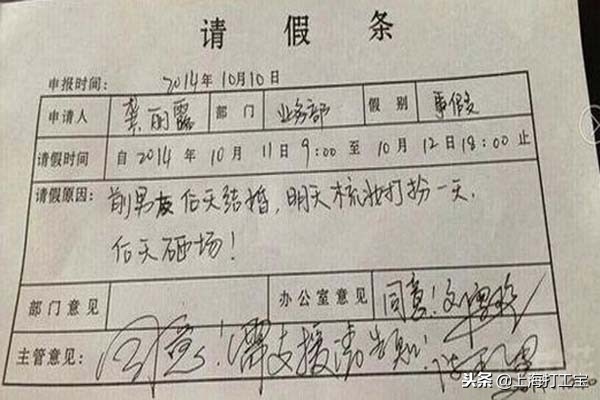 请假条
申报时间： 2014年10月10日
申请人 龚丽露 部门 业务部 假别 事假
请假时间 自2014年10月11日9:00至10月12日18:00止
请假原因：
前男友后天结婚，明天梳妆打扮一天，
后天砸场！
部门意见 办公室意见 同意！
主管意见： 同意！需支援请告知！
头条 @上海打工宝